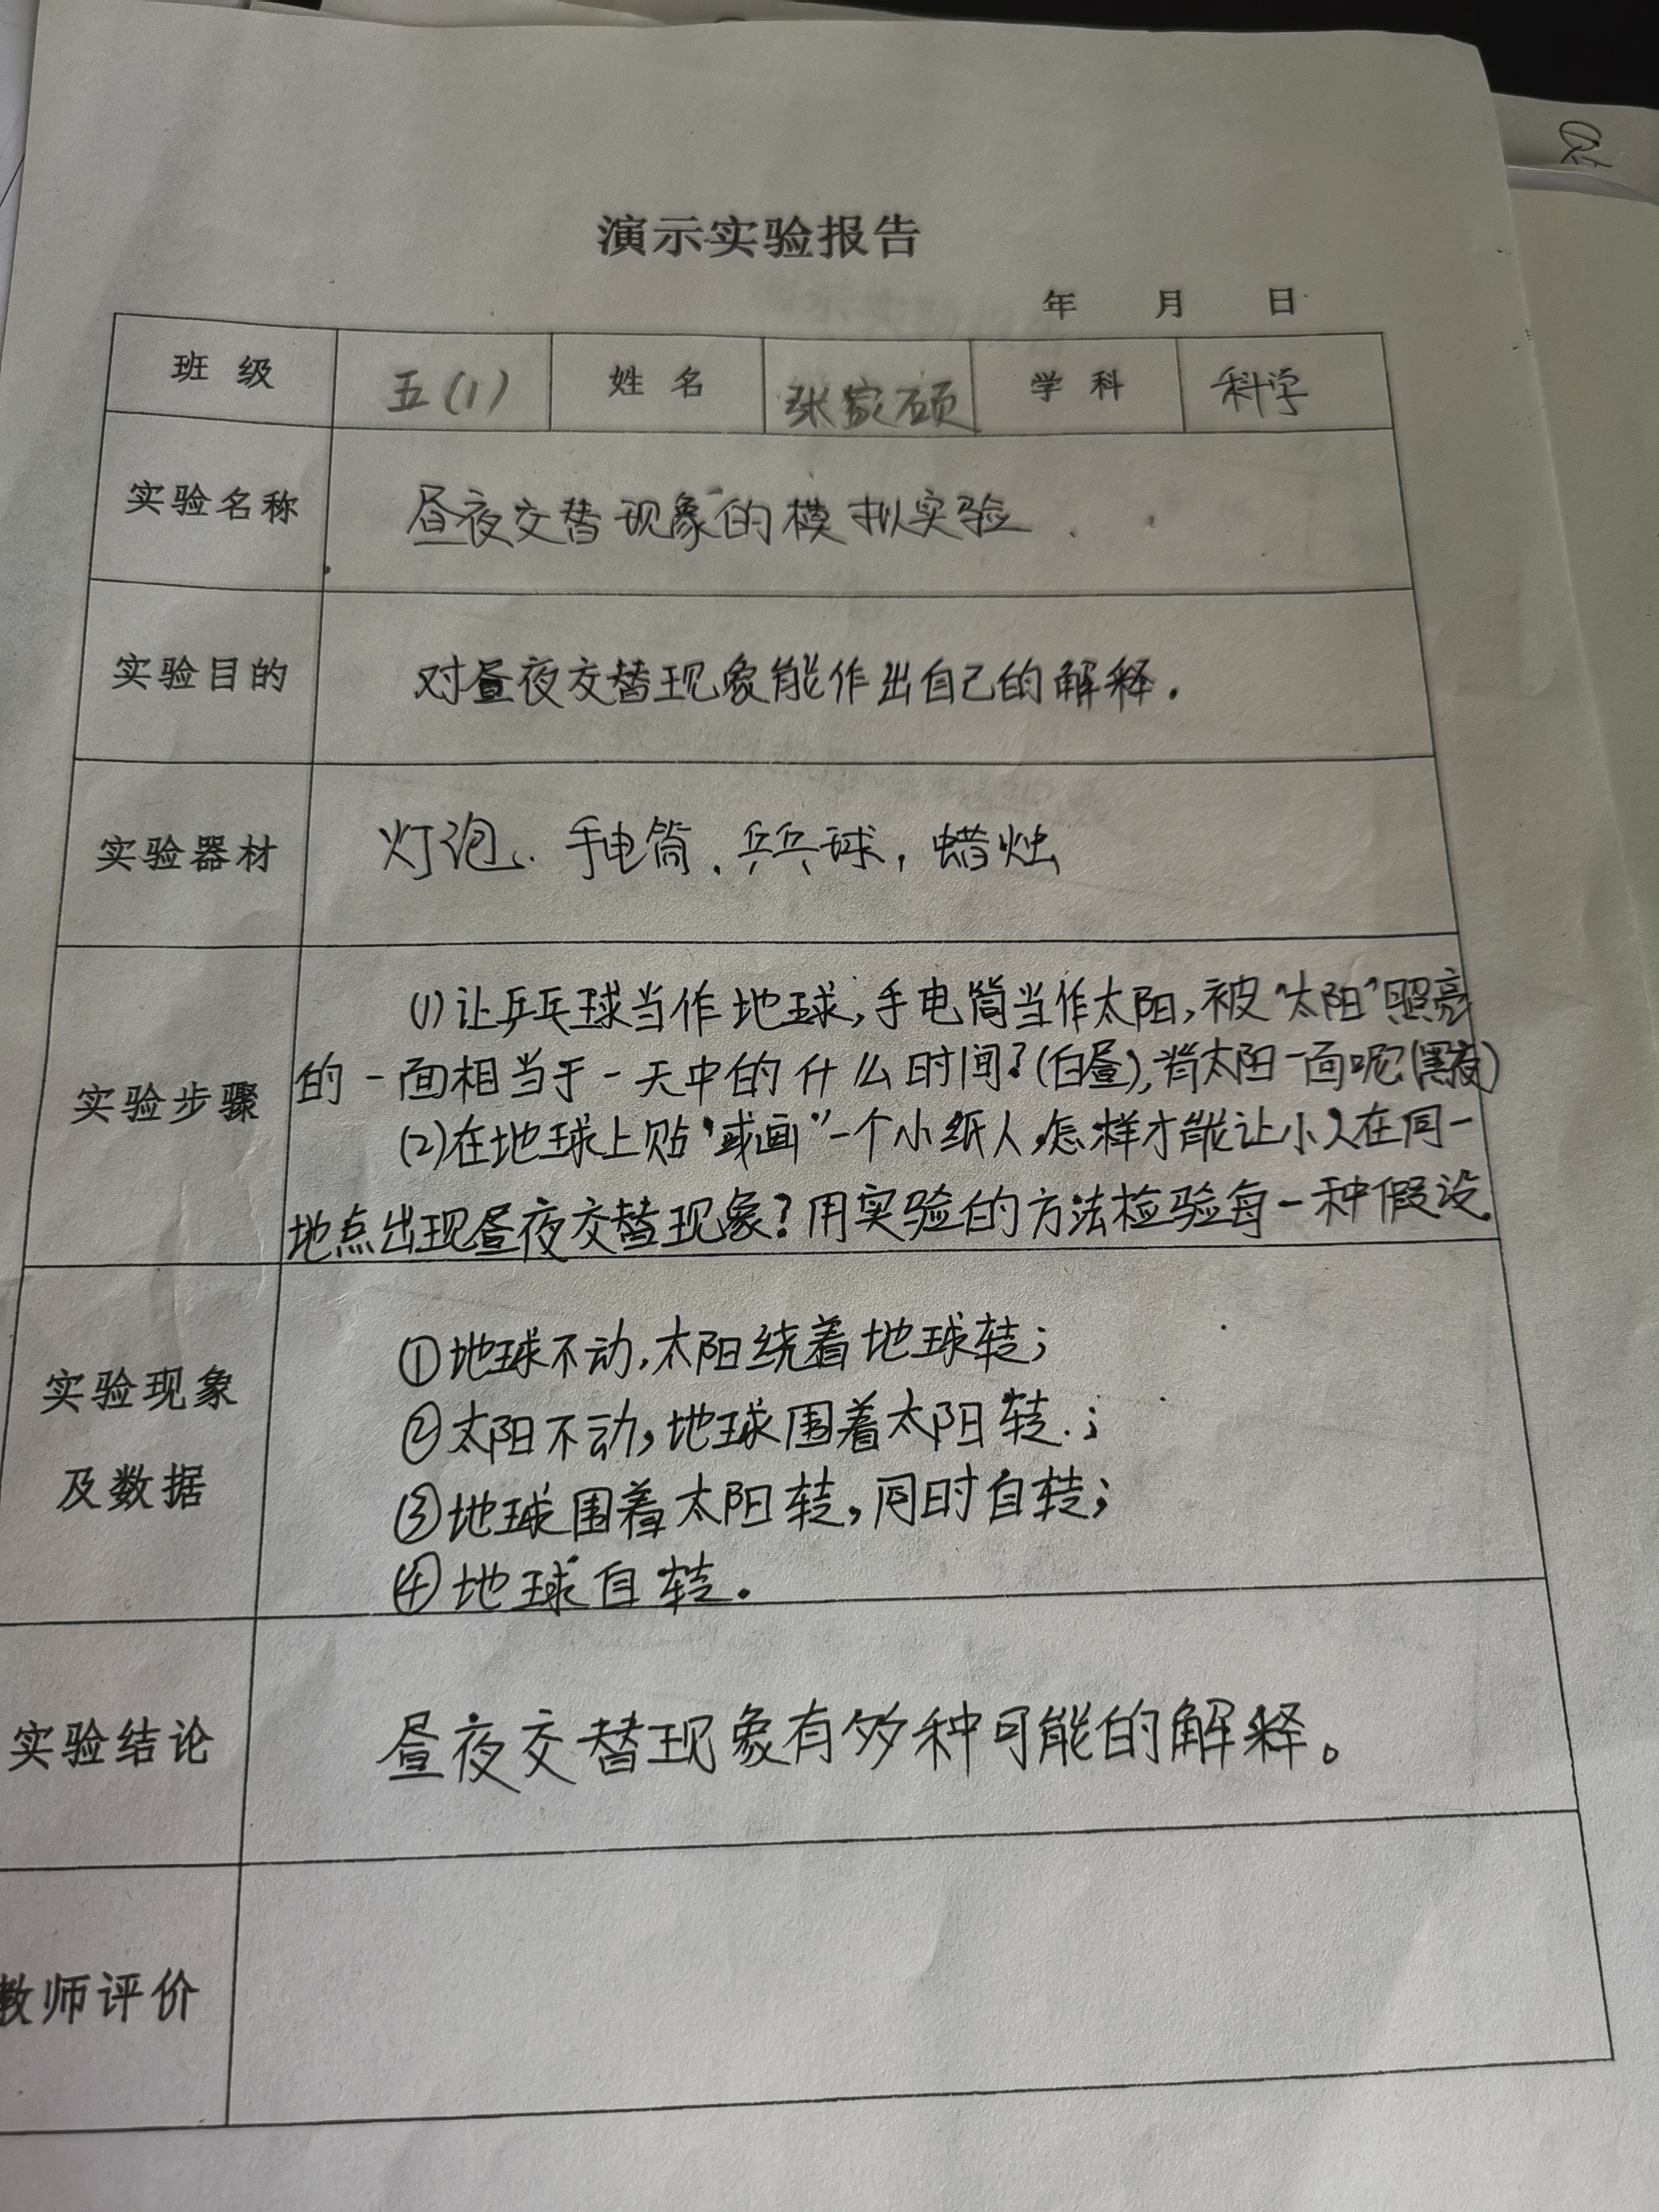 演示实验报告
年 月 日
班级 五(1) 姓名 张家硕 学科 科学
实验名称 昼夜交替现象的模拟实验.
实验目的 对昼夜交替现象能作出自己的解释.
实验器材 灯泡、手电筒、乒乓球,蜡烛
(1)让乒乓球当作地球,手电筒当作太阳,被“太阳”照亮
实验步骤 的一面相当于一天中的什么时间?(白昼),背太阳一面呢(黑夜)
(2)在地球上贴“或画”一个小纸人,怎样才能让小人在同一
地点出现昼夜交替现象?用实验的方法检验每一种假设.
实验现象
及数据
①地球不动,太阳绕着地球转;
②太阳不动,地球围着太阳转.;
③地球围着太阳转,同时自转;
④地球自转.
实验结论 昼夜交替现象有多种可能的解释。
教师评价